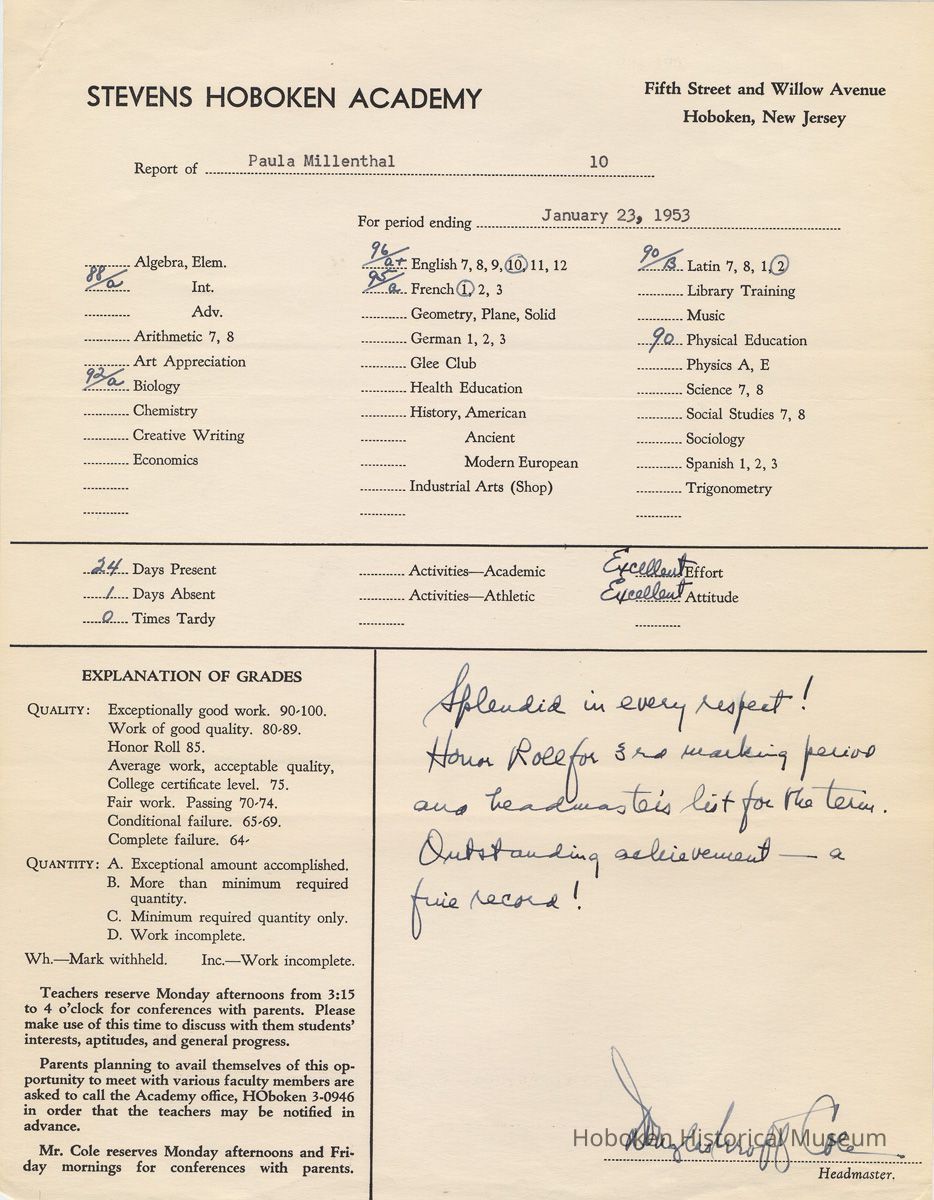 STEVENS HOBOKEN ACADEMY
Fifth Street and Willow Avenue
Hoboken, New Jersey
Report of Paula Millenthal 10
For period ending January 23, 1953
Algebra, Elem.
88/a Int.
Adv.
Arithmetic 7, 8
Art Appreciation
92/a Biology
Chemistry
Creative Writing
Economics
96/a+ English 7, 8, 9, 10, 11, 12
95/a French 1, 2, 3
Geometry, Plane, Solid
German 1, 2, 3
Glee Club
Health Education
History, American
Ancient
Modern European
Industrial Arts (Shop)
90/B Latin 7, 8, 1, 2
Library Training
Music
90 Physical Education
Physics A, E
Science 7, 8
Social Studies 7, 8
Sociology
Spanish 1, 2, 3
Trigonometry
24 Days Present
1 Days Absent
0 Times Tardy
Activities—Academic
Activities—Athletic
Excellent Effort
Excellent Attitude
EXPLANATION OF GRADES
QUALITY: Exceptionally good work. 90-100.
Work of good quality. 80-89.
Honor Roll 85.
Average work, acceptable quality,
College certificate level. 75.
Fair work. Passing 70-74.
Conditional failure. 65-69.
Complete failure. 64-
QUANTITY: A. Exceptional amount accomplished.
B. More than minimum required
quantity.
C. Minimum required quantity only.
D. Work incomplete.
Wh.—Mark withheld. Inc.—Work incomplete.
Teachers reserve Monday afternoons from 3:15
to 4 o'clock for conferences with parents. Please
make use of this time to discuss with them students'
interests, aptitudes, and general progress.
Parents planning to avail themselves of this op-
portunity to meet with various faculty members are
asked to call the Academy office, HOboken 3-0946
in order that the teachers may be notified in
advance.
Mr. Cole reserves Monday afternoons and Fri-
day mornings for conferences with parents.
Splendid in every respect!
Honor Roll for 3rd marking period
and headmaster's list for the term.
Outstanding achievement — a
fine record!
Cole
Hoboken Historical Museum
Headmaster.